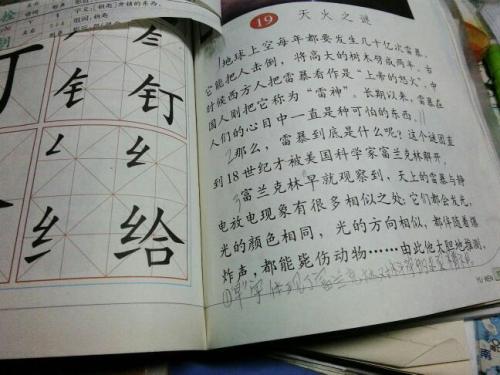 下定义：（钥匙）开锁的东西。
组词：钥匙
钅
钅
钉
纟
纟
纟
给
19 天火之谜
1地球上空每年都要发生几十亿次雷暴。
它能把人击倒，将高大的树木劈成两半。古
时候西方人把雷暴看作是“上帝的怒火”，中
国人则把它称为“雷神”。长期以来，雷暴在
人们的心目中一直是种可怕的东西。
2那么，雷暴到底是什么呢？这个谜团直
到18世纪才被美国科学家富兰克林解开。
3富兰克林早就观察到，天上的雷暴与静
电放电现象有很多相似之处：它们都会发光，
光的颜色相同，光的方向相似，都伴随着爆
炸声，都能毙伤动物……由此他大胆地推测，
①“早”字
YU WEN